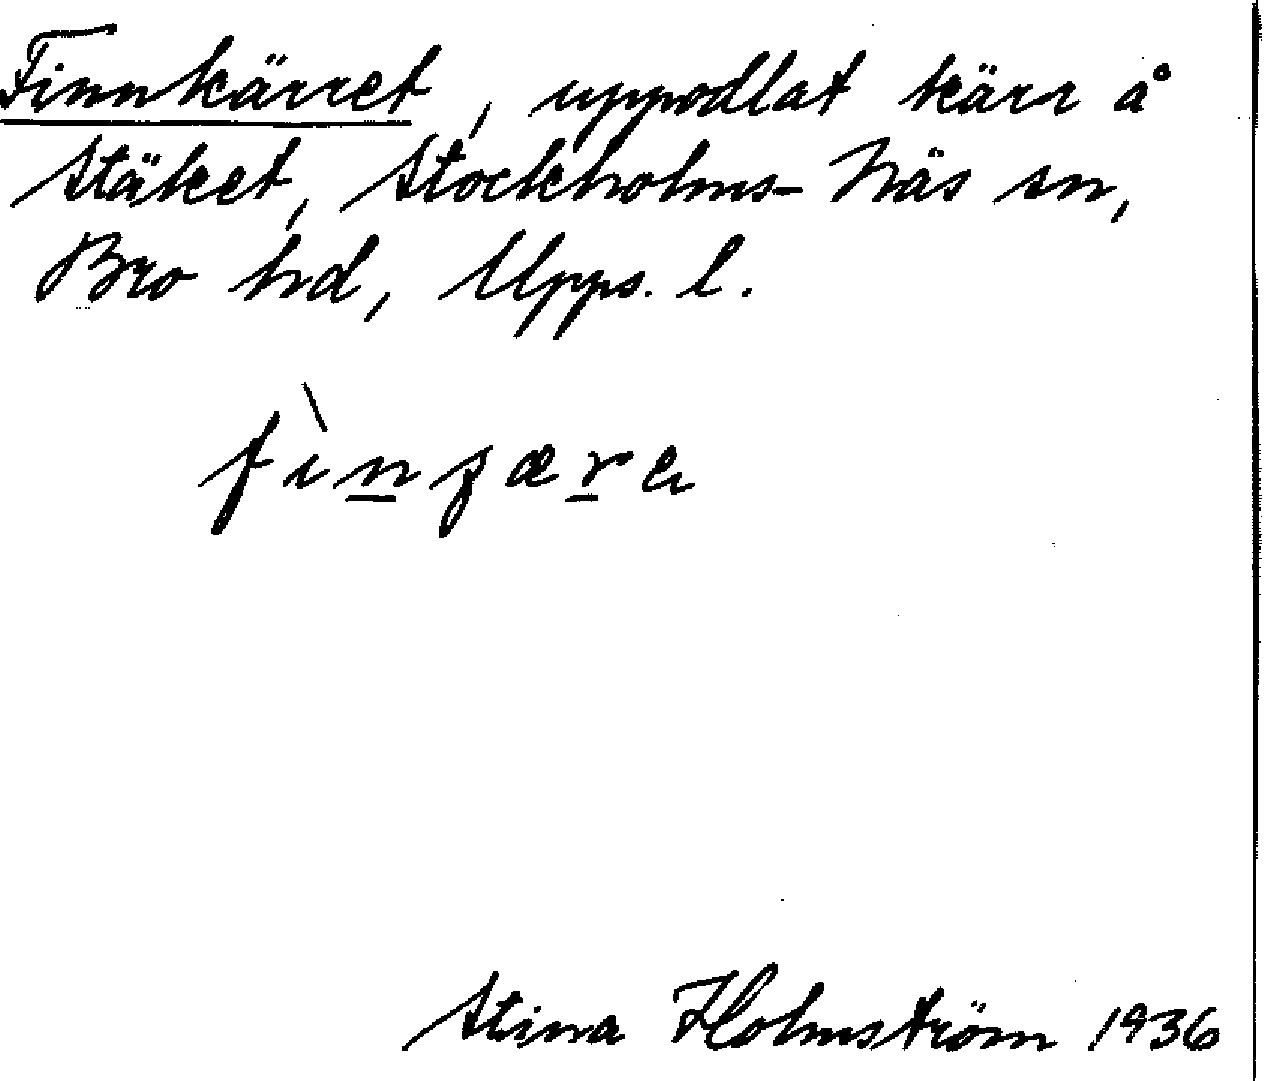 Finnkärret, uppodlat kärr å
Stäket, Stockholms-Näs sn,
Bro hd, Upps. l.
Stina Holmström 1936